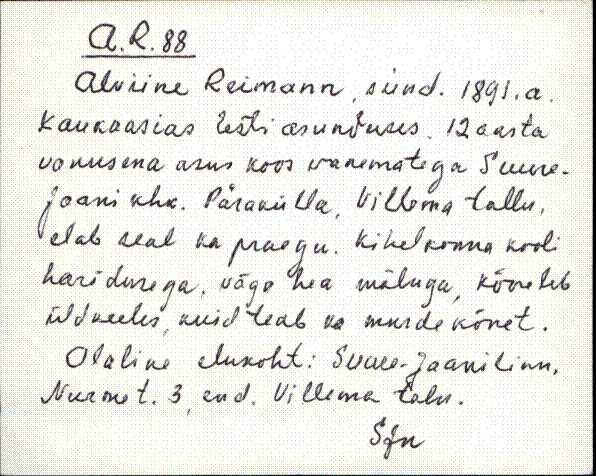 A.R. 88
Alviine Reimann, sünd. 1891. a.
Kaukaasias Eesti asunduses. 12 aasta
vanusena asus koos vanematega Suure-
Jaani khk. Päraküla, Villema tallu,
elab seal ka praegu. Kihelkonna kooli
haridusega, väga hea mäluga, kõneleb
üldkeeles, kuid teab ka murdekõnet.
Olaline elukoht: Suure-Jaani linn,
Nurme t. 3, end. Villema talu.
SJn